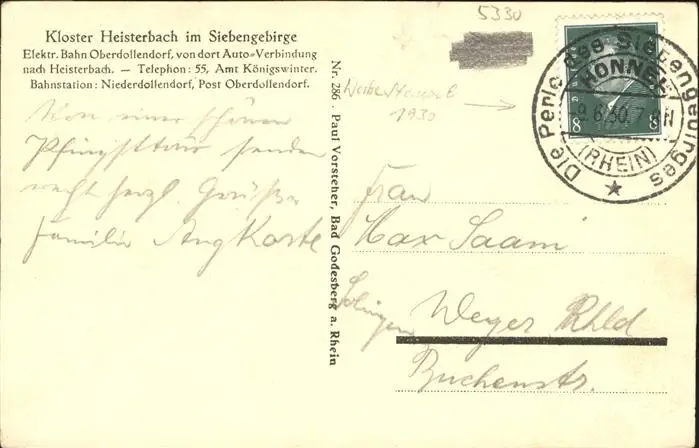 Kloster Heisterbach im Siebengebirge
Elektr. Bahn Oberdollendorf, von dort Auto-Verbindung
nach Heisterbach. — Telephon: 55, Amt Königswinter.
Bahnstation: Niederdollendorf, Post Oberdollendorf.
Von einer schönen
Pfingsttour senden
recht herzl. Grüße
Familie
Nr. 286. Paul Vorsteher, Bad Godesberg a. Rhein
5330
1930
Die Perle des Siebengebirges
HONNEF
9.6.30. 7
(RHEIN)
8 8
Frau
Max Saam
Solingen
Weyer Rhld
Buchenstr.